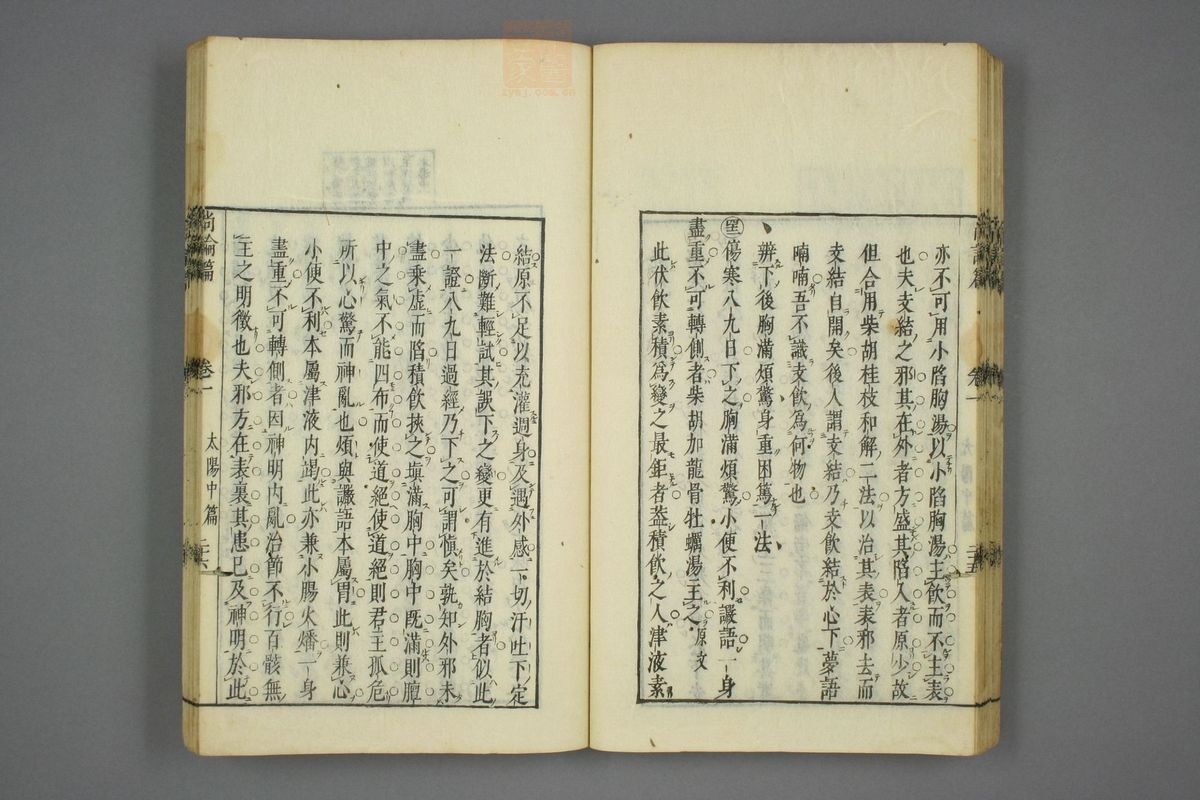 亦不可用小陷胸湯以小陷胸湯主飲而不主表
也夫支結之邪其在外者方盛其陷入者原少故
但合用柴胡桂枝和解二法以治其表表邪去而
支結自開矣後人謂支結乃支飲結於心下夢語
喃喃吾不識支飲爲何物也
辨下後胸滿煩驚身重困篤一法
傷寒八九日下之胸滿煩驚小便不利讝語一身
盡重不可轉側者柴胡加龍骨牡蠣湯主之原文
此伏飲素積爲變之最鉅者葢積飲之人津液素
結原不足以充灌週身及遇外感一切汗吐下定
法斷難輕試其誤下之變更有進於結胸者似此
一證八九日過經乃下之可謂愼矣孰知外邪未
盡乘虛而陷積飲挾之塡滿胸中胸中既滿則膻
中之氣不能四布而使道絕使道絕則君主孤危
所以心驚而神亂也煩與讝語本屬胃此則兼心
小便不利本屬津液内竭此亦兼小腸火燔一身
盡重不可轉側者因神明内亂治節不行百骸無
主之明徵也夫邪方在表裏其患已及神明於此
尚論篇 卷一 太陽中篇 二十六
zysj.com.cn